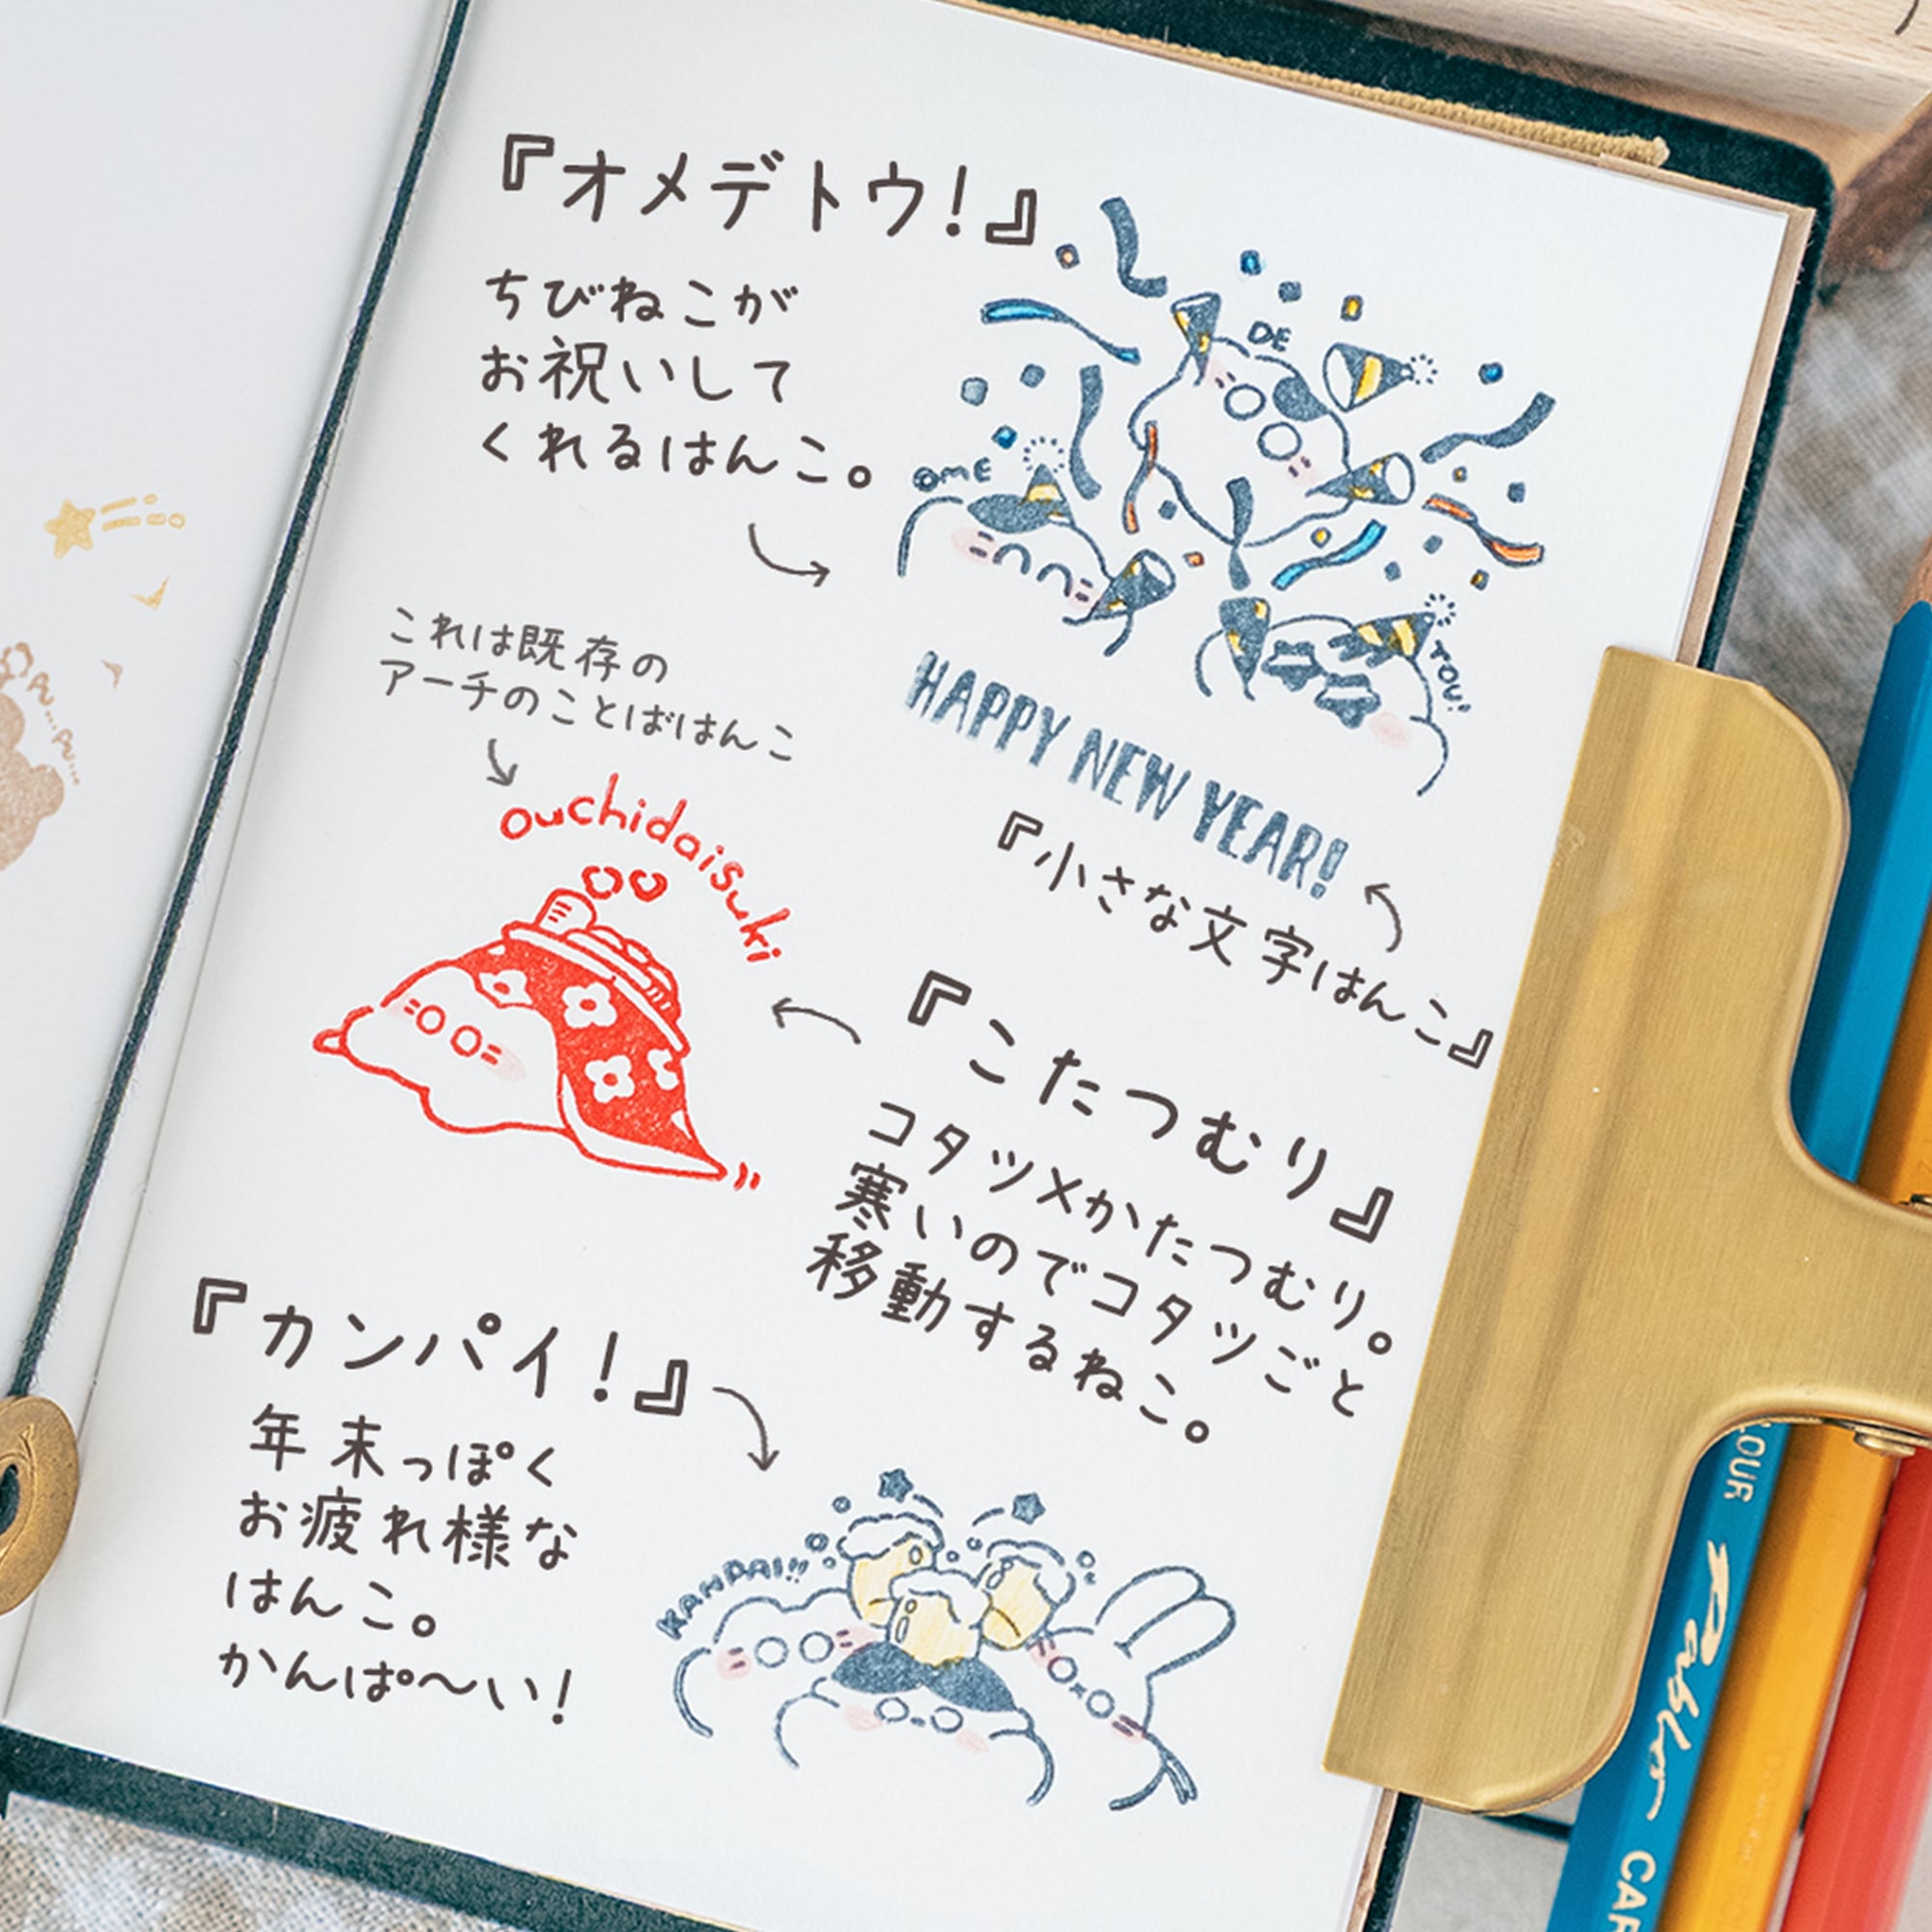 『オメデトウ!』
ちびねこが
お祝いして
くれるはんこ。
DE
OME
TOU!
HAPPY NEW YEAR!
『小さな文字はんこ』
これは既存の
アーチのことばはんこ
ouchidaisuki
『こたつむり』
コタツ×かたつむり。
寒いのでコタツごと
移動するねこ。
『カンパイ!』
年末っぽく
お疲れ様な
はんこ。
かんぱ〜い!
KANPAI!!
PU...PU...
LOUR Pablo CAR